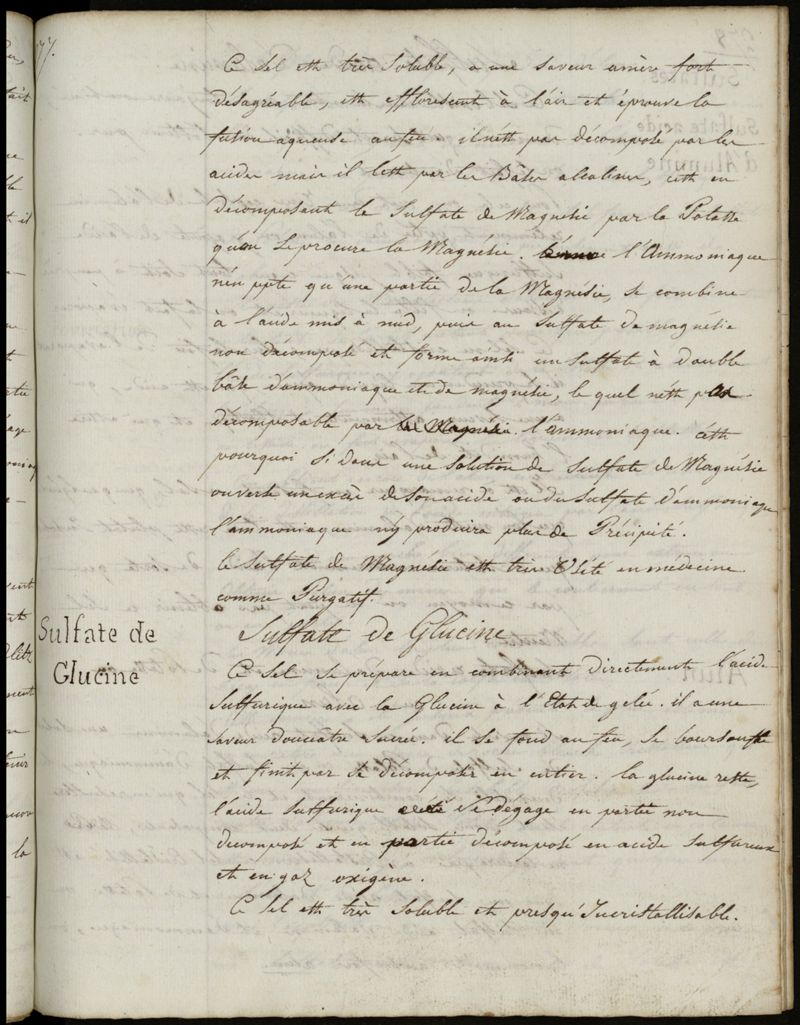 77.
Ce sel est très soluble, a une saveur amère fort
désagréable, est efflorescent à l'air et éprouve la
fusion aqueuse au feu. il n'est pas décomposé par les
acides mais il l'est par les Bases alcalines, c'est en
décomposant le Sulfate de Magnésie par la Potasse
qu'on se procure la Magnésie. l'Ammoniaque
n'en ppte qu'une partie de la Magnésie, se combine
à l'acide mis à nud, puis au Sulfate de magnésie
non décomposé et forme ainsi un sulfate à double
bâse d'ammoniaque et de magnésie, le quel n'est pas
décomposable par la Magnésie. l'ammoniaque. c'est
pourquoi si dans une solution de Sulfate de Magnésie
on verse un excès de son acide ou du sulfate d'ammoniaque
l'ammoniaque n'y produira plus de Précipité.
le Sulfate de Magnésie est très Usité en médecine
comme Purgatif.
Sulfate de
Glucine
Sulfate de Glucine
Ce Sel se prépare en combinant directement l'acide
Sulfurique avec la Glucine à l'Etat de gelée. il a une
saveur douceâtre sucrée. il se fond au feu, se boursouffle
et finit par se décomposer en entier. la glucine reste,
l'acide sulfurique se dégage en partie non
décomposé et en partie décomposé en acide sulfureux
et en gaz oxigène.
Ce sel est très soluble et presqu'Incristallisable.